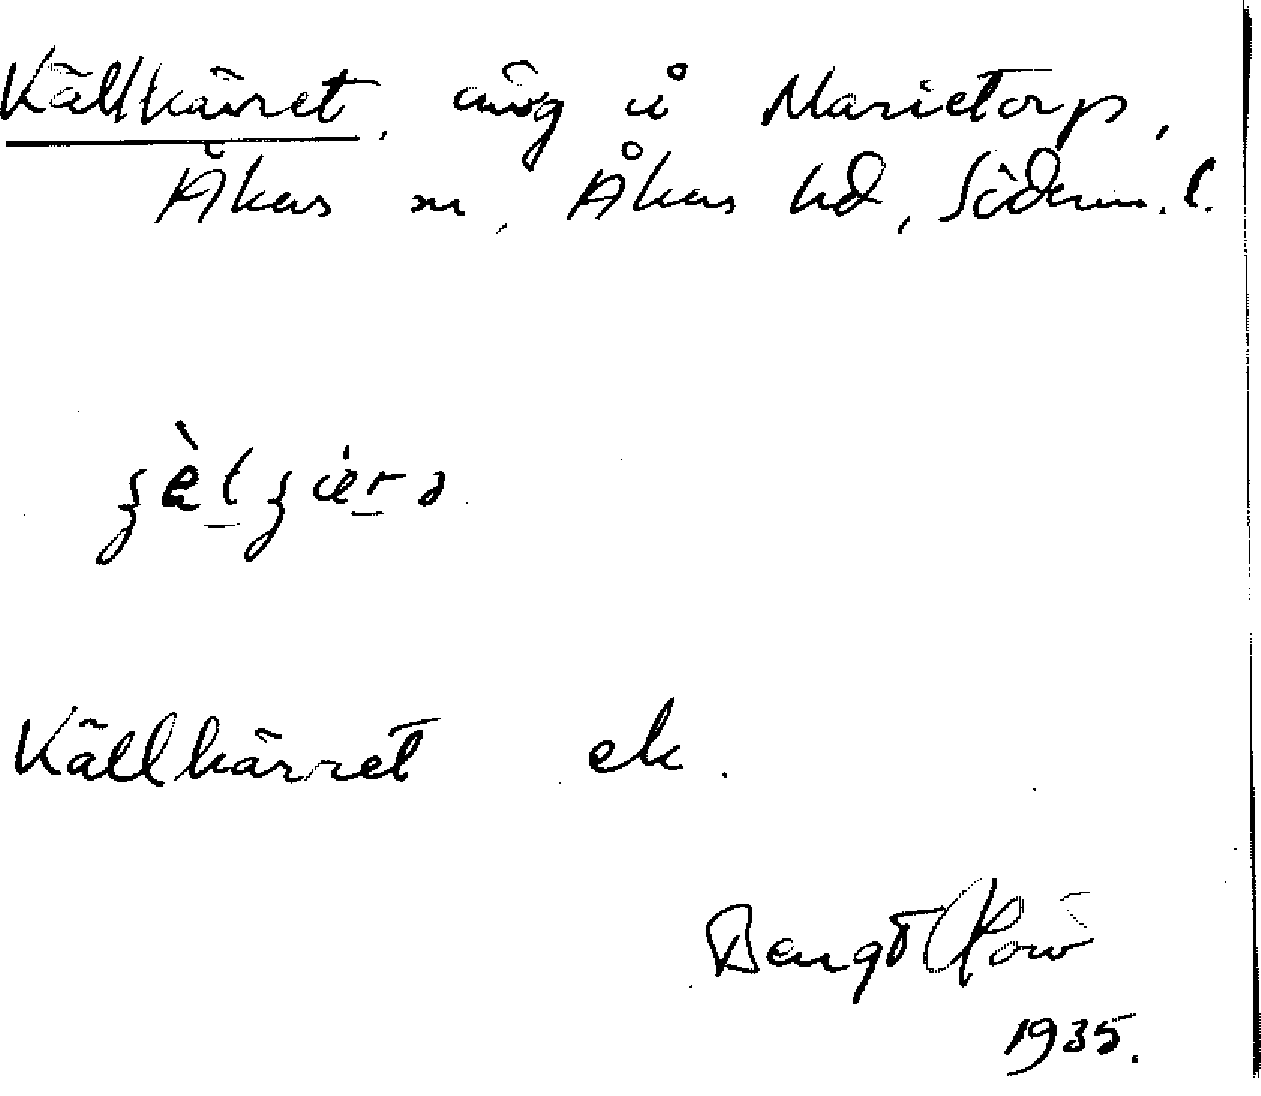 Källkärret, äng å Marietorp,
Åkers sn, Åkers hd, Söderm. l.
Källkärret ek.
Bengt
1935.